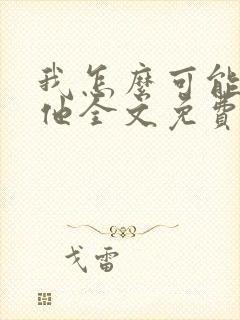 我怎麼可能
他全文免費
戈雷